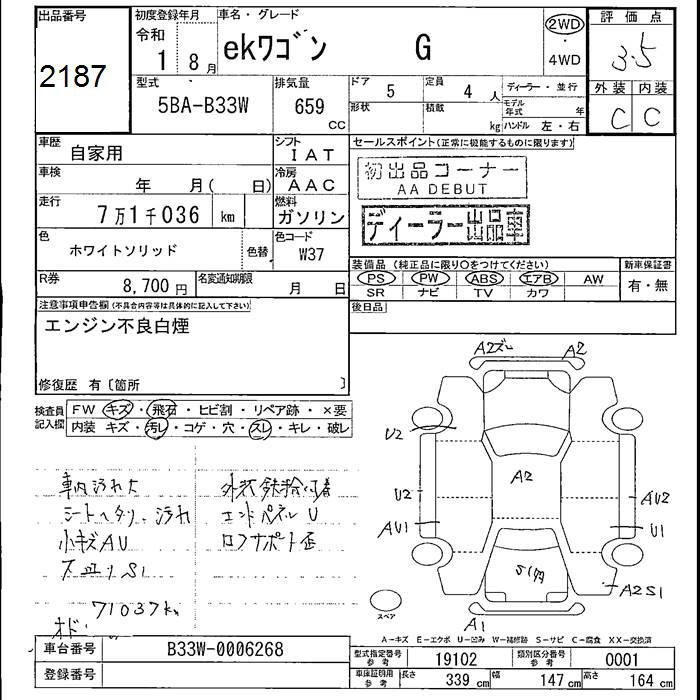 出品番号
2187
初度登録年月
令和
1 8月
車名・グレード
ekワゴン G
2WD
・
4WD
評価点
3.5
外装 内装
C C
型式
5BA-B33W
排気量
659
CC
ドア
5
定員
4 人
形状
積載
kg
ディーラー・並行
モデル年式 年
ハンドル 左・右
車歴
自家用
シフト
IAT
車検
年 月( 日)
冷房
AAC
走行
7万1千036 km
燃料
ガソリン
色
ホワイトソリッド
色替
色コード
W37
R券
8,700円
名変通知期限
月 日
セールスポイント(正常に機能するものに限ります)
初出品コーナー
AA DEBUT
ディーラー出品車
装備品(純正品に限り○をつけてください)
PS PW ABS エアB AW
SR ナビ TV カワ
新車保証書
有・無
後日品
注意事項申告欄(不具合内容等は具体的に記入して下さい)
エンジン不良白煙
修復歴 有〔箇所 〕
検査員
記入欄
FW キズ・飛石・ヒビ割・リペア跡・×要
内装 キズ・汚レ・コゲ・穴・スレ・キレ・破レ
車内汚れ大
シートヘタリ、汚れ
小キズAU
外装鉄粉付着
エンドパネルU
ロアサポート歪
S1
71037km
オド
A2 A2
U2
A2
U2
AU2
AU1
U1
A2S1
A1
スペア
A-キズ E-エクボ U-凹み W-補修跡 S-サビ C-腐食 XX-交換済
車台番号
B33W-0006268
登録番号
型式指定番号
参考
19102
類別区分番号
参考
0001
車庫証明用
参考
長さ 339 cm 幅 147 cm 高さ 164 cm